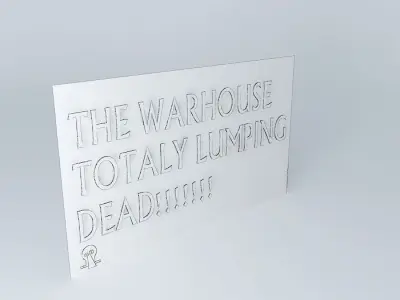 THE WARHOUSE
TOTALY LUMPING
DEAD!!!!!!!